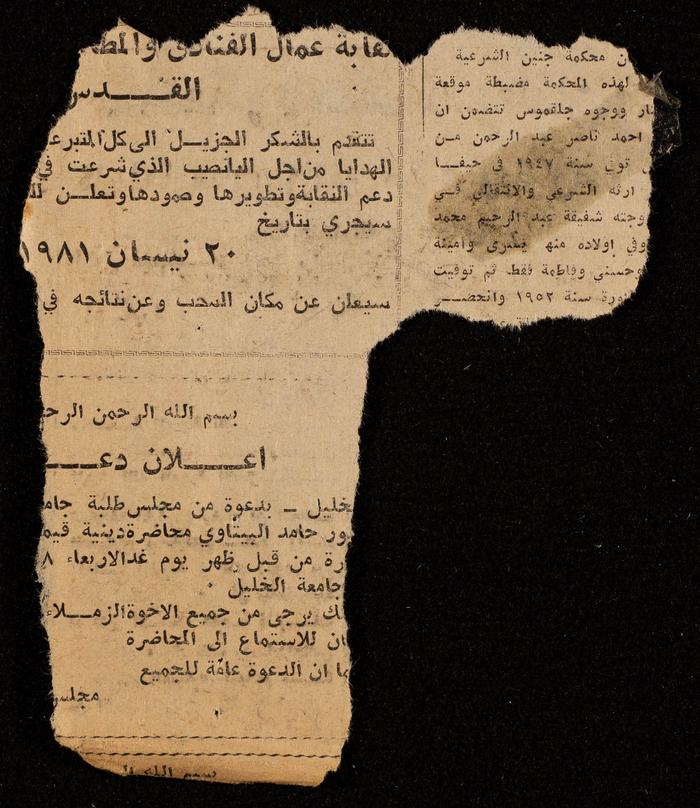 ن محكمة جنين الشرعية
لهذه المحكمة مضبطة موقعة
ار ووجوه جلقموس تتضمن ان
احمد ناصر عبد الرحمن مـن
توفي سنة ١٩٤٧ في حيفـــا
ارثه الشرعي والانتقالي فـــي
وجته شفيقة عبد الرحيم محمد
وفي اولاده منها يسرى وامينة
وحسني وفاطمة فقط ثم توفيت
ورة سنة ١٩٥٢ وانحصـــر
نقابة عمال الفنادق والمطا
القـــدس
تتقدم بالشكر الجزيــل الى كل المتبرع
الهدايا من اجل اليانصيب الذي شرعت في
دعم النقابة وتطويرها وصمودها وتعلــن لل
سيجري بتاريخ
٢٠ نيسان ١٩٨١
سيعلن عن مكان السحب وعن نتائجه في
بسم الله الرحمن الرح
اعــــلان دعــــ
خليل ــ بدعوة من مجلس طلبة جام
ور حامد البيتاوي محاضرة دينية قيم
رة من قبل ظهر يوم غد الاربعاء ٨
جامعة الخليل ٠
لك يرجى من جميع الاخوة الزمـــلاء
ان للاستماع الى المحاضرة
ما ان الدعوة عامة للجميع
مجلس
بسم الله ال